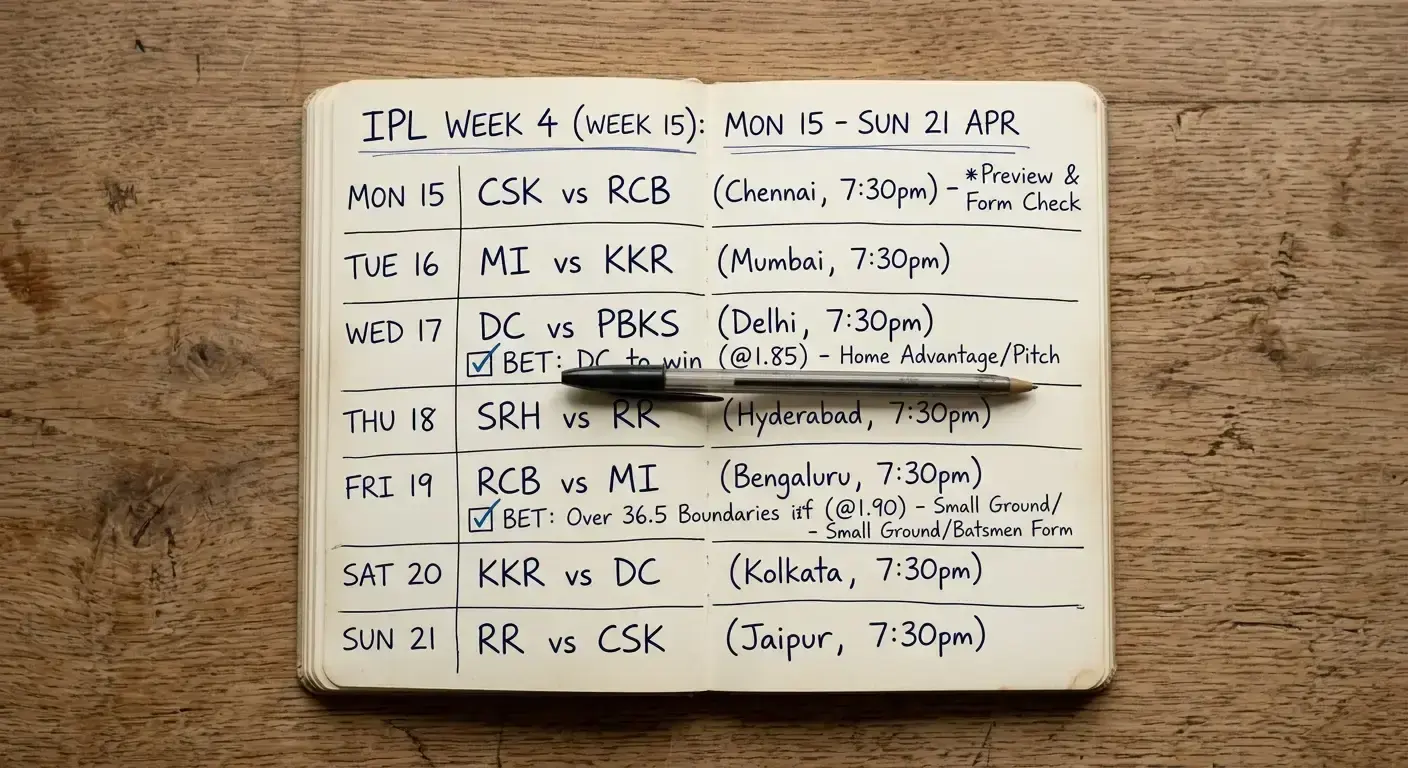 IPL WEEK 4 (WEEK 15): MON 15 – SUN 21 APR
MON 15 CSK vs RCB (Chennai, 7:30pm) – *Preview & Form Check
TUE 16 MI vs KKR (Mumbai, 7:30pm)
WED 17 DC vs PBKS (Delhi, 7:30pm)
BET: DC to win (@1.85) – Home Advantage/Pitch
THU 18 SRH vs RR (Hyderabad, 7:30pm)
FRI 19 RCB vs MI (Bengaluru, 7:30pm)
BET: Over 36.5 Boundaries (@1.90) – Small Ground/
– Small Ground/Batsmen Form
SAT 20 KKR vs DC (Kolkata, 7:30pm)
SUN 21 RR vs CSK (Jaipur, 7:30pm)